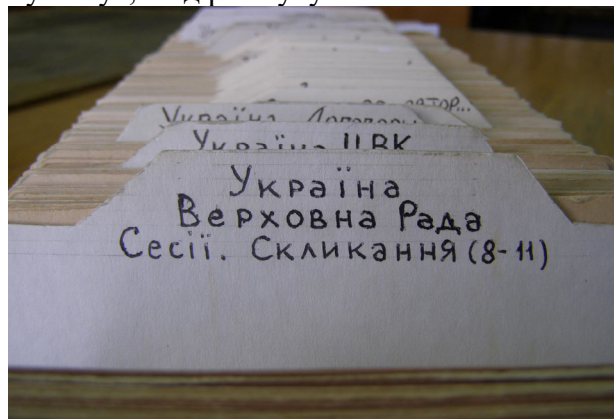 Україна
Україна ЦВК
Україна
Верховна Рада
Сесії. Скликання (8-11)